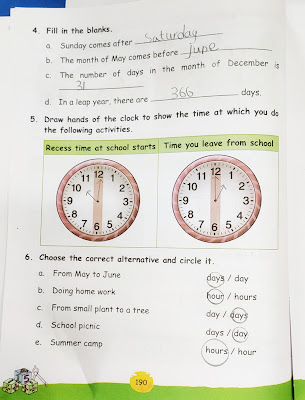 4. Fill in the blanks.
a. Sunday comes after Saturday
b. The month of May comes before june
c. The number of days in the month of December is
31
d. In a leap year, there are 366 days.
5. Draw hands of the clock to show the time at which you do
the following activities.
Recess time at school starts Time you leave from school
11 12 1
10 2
9 3
8 4
7 6 5
11 12 1
10 2
9 3
8 4
7 6 5
6. Choose the correct alternative and circle it.
a. From May to June days / day
b. Doing home work hour / hours
c. From small plant to a tree day / days
d. School picnic days / day
e. Summer camp hours / hour
190